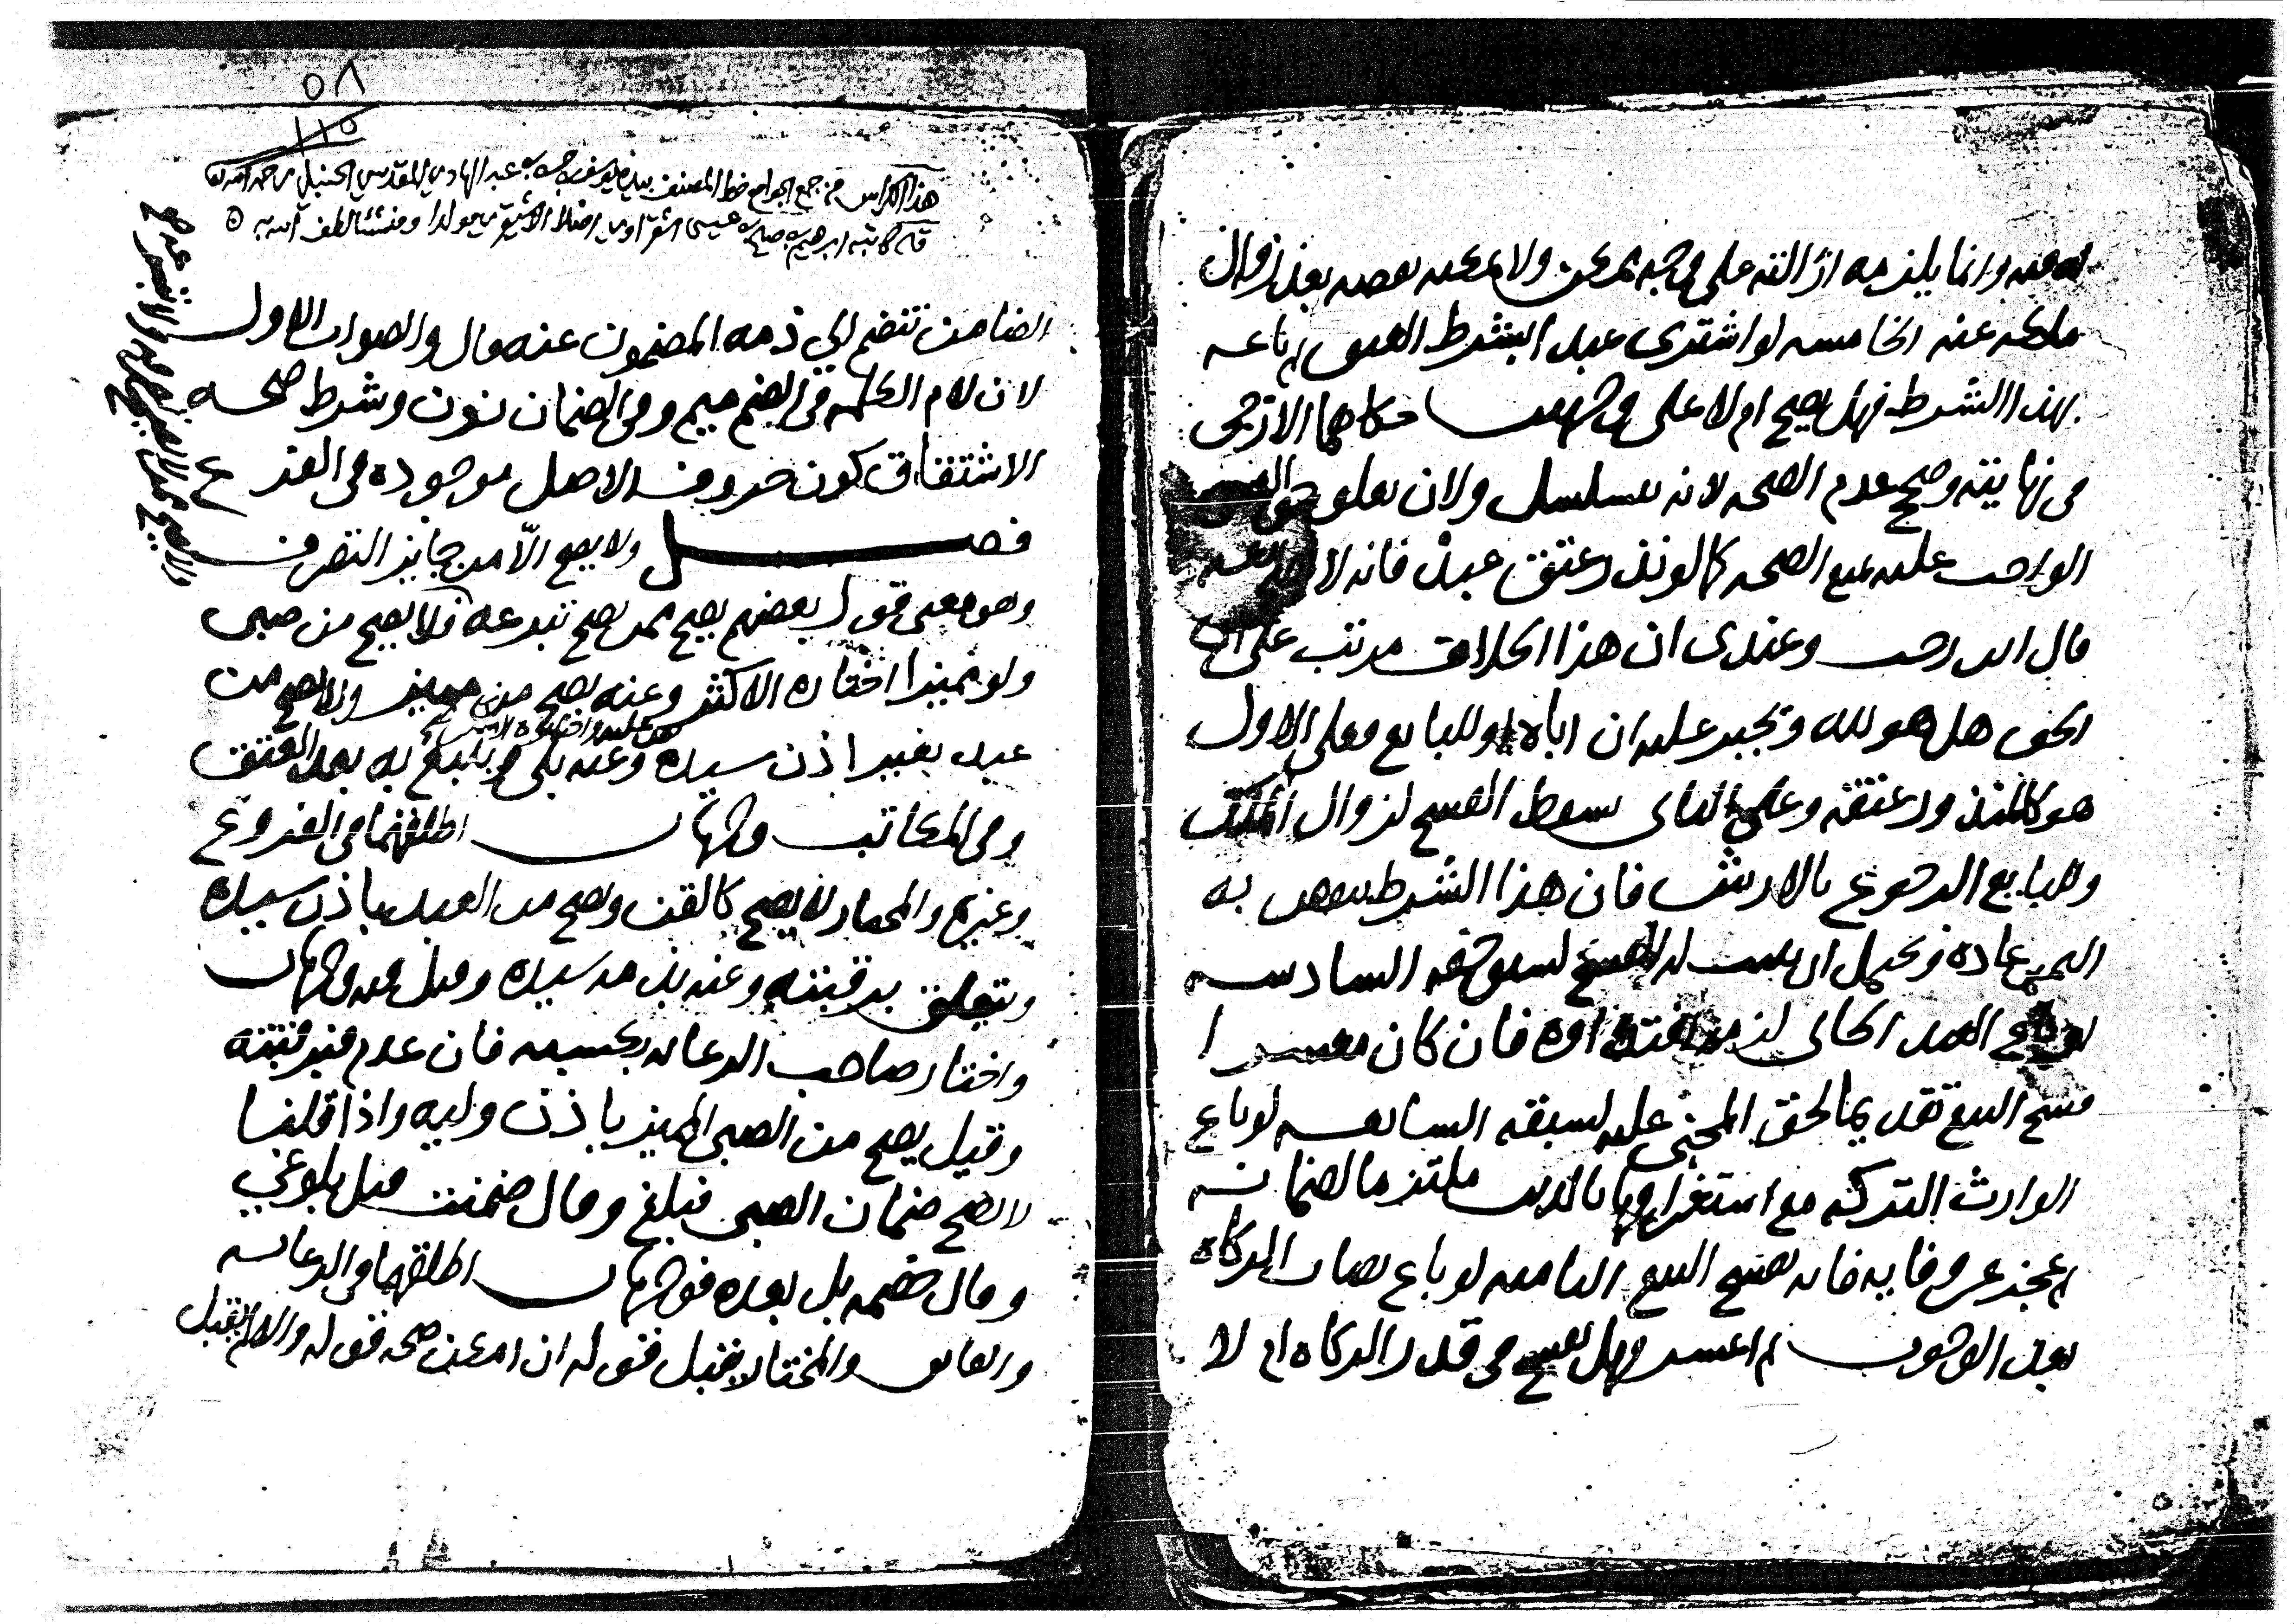 له فيه وإنما يلزمه ازالته على وجه يمكن ولا يمكنه نقصه بعد زوال
ملكه عنه الخامسه لو اشترى عبدا بشرط العتق ثم باعه
بهذا الشرط فهل يصح ام لا على وجهين حكاهما الازجي
في نهايته وصحح عدم الصحه لانه يتسلسل ولان تعلق حق العتق
الواجب عليه يمنع الصحه كما لو نذر عتق عبد فانه لا يصح بيعه
قال ابن رجب وعندي ان هذا الخلاف مرتب على ان
الحق هل هو لله ويجبر عليه ان اباه او للبايع فعلى الاول
هو كالمنذور عتقه وعلى الثاني يسقط الفسخ لزوال الملك
وللبايع الرجوع بالارش فان هذا الشرط ينقص به
الثمن عادة ويحتمل ان يثبت له الفسخ لسبق حقه السادسه
لو باع العبد الجاني لزمه افتداؤه فان كان معسرا
فسخ البيع تقديما لحق المجني عليه لسبقه السابعه لو باع
الوارث التركه مع استغراقها بالدين ملتزما لضمانه
ثم عجز عن وفايه فانه يفسخ البيع الثامنه لو باع نصاب الزكاه
بعد الوجوب ثم اعسر فهل يفسخ في قدر الزكاه ام لا
٥٨
١١٥
هذا الكراس من جمع الجوامع خط المصنف بيده يوسف بن حسن بن عبد الهادي المقدسي الحنبلي رحمه الله
قاله كاتبه ابراهيم بن صالح بن عيسى
الضامن تنضم الي ذمه المضمون عنه قال والصواب الاول
لان لام الكلمه في الضم ميم وفي الضمان نون وشرط صحه
الاشتقاق كون حروف الاصل موجوده في الفرع
فصل ولا يصح الّا من جايز التصرف
وهو معنى قول بعضهم يصح ممن يصح تبرعه فلا يصح من صبي
ولو مميزا اختاره الاكثر وعنه يصح من مميز ولا يصح من
عبد بغير اذن سيده وعنه بلى ويتبع به بعد العتق
وفي المكاتب وجهان اطلقهما في الفروع
وغيره والمختار لا يصح كالقن ويصح من العبد باذن سيده
ويتعلق برقبته وعنه بذمه سيده وقيل فيه وجهان
واختار صاحب الرعايه بكسبه فان عدم فبرقبته
وقيل يصح من الصبي المميز باذن وليه واذا قلنا
لا يصح ضمان الصبي فبلغ وقال ضمنت قبل بلوغي
وقال خصمه بل بعده فوجهان اطلقهما في الرعايه
والفايق والمختار يقبل قوله ان امكن صحه قوله والا لم يقبل